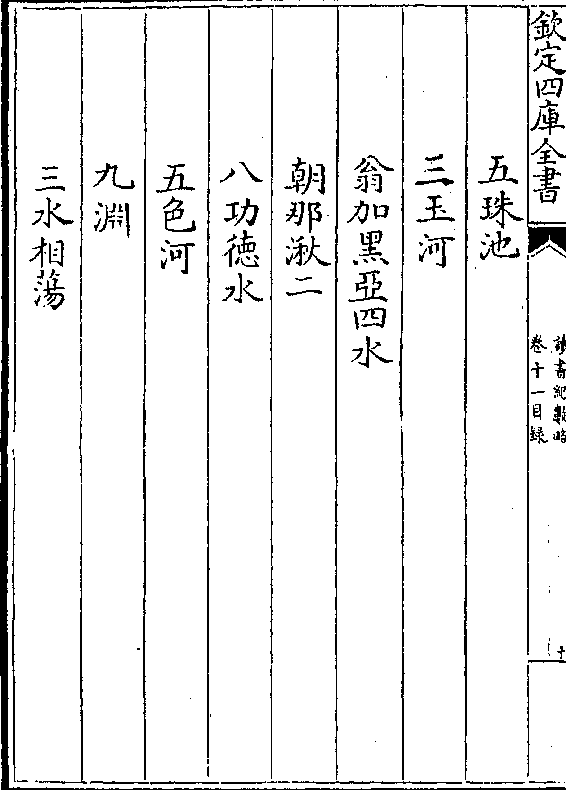 欽定四庫全書
讀書紀數略
卷十一目録
十
五珠池
三玉河
翁加黑亞四水
朝那湫二
八功徳水
五色河
九淵
三水相蕩